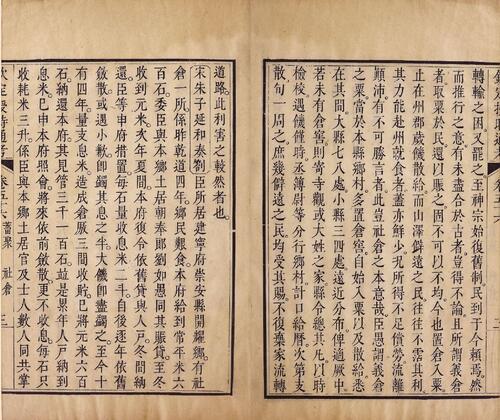 轉輸之困又罷之至神宗始復舊制民到于今賴焉然
而推行之意有未盡合於古者豈得不論且所謂義倉
者取粟於民還以賑之固不可以不均今也置倉入粟
止在州郡歲饑散給而山澤僻遠之民往往不霑其利
其力能赴州就食者蓋亦鮮少況所得不足償勞流離
顛沛有不可勝言者此豈社倉之本意哉臣愚謂義倉
之粟當於本縣鄉村多置倉窖自始入粟以及散給悉
在其間大縣七八處小縣三四處遠近分布俾適厥中
若未有倉窖則寄寺觀或大姓之家縣令總其凡以時
檢校遇饑饉時丞簿尉等分行鄉村計口給曆次第支
散旬一周之庶幾僻遠之民均受其賜不復棄家流轉
道路此利害之較然者也
宋朱子延和奏劄臣所居建寧府崇安縣開耀鄉有社
倉一所係昨乾道四年鄉民艱食本府給到常平米六
百石委臣與本鄉土居朝奉郎劉如愚同其賑貸至冬
收到元米次年夏間本府復令依舊貸與人戶冬間納
還臣等申府措置每石量收息米二斗自後逐年依舊
斂散或遇小歉卽蠲其息之半大饑卽盡蠲之至今十
有四年量支息米造成倉厫三間收貯已將元米六百
石納還本府其見管三千一百石並是累年人戶納到
息米已申本府照會將來依前斂散更不收息每石只
收耗米三升係臣與本鄉土居官及士人數人同共掌
欽定授時通考 卷五十六 蓄聚 社倉 三